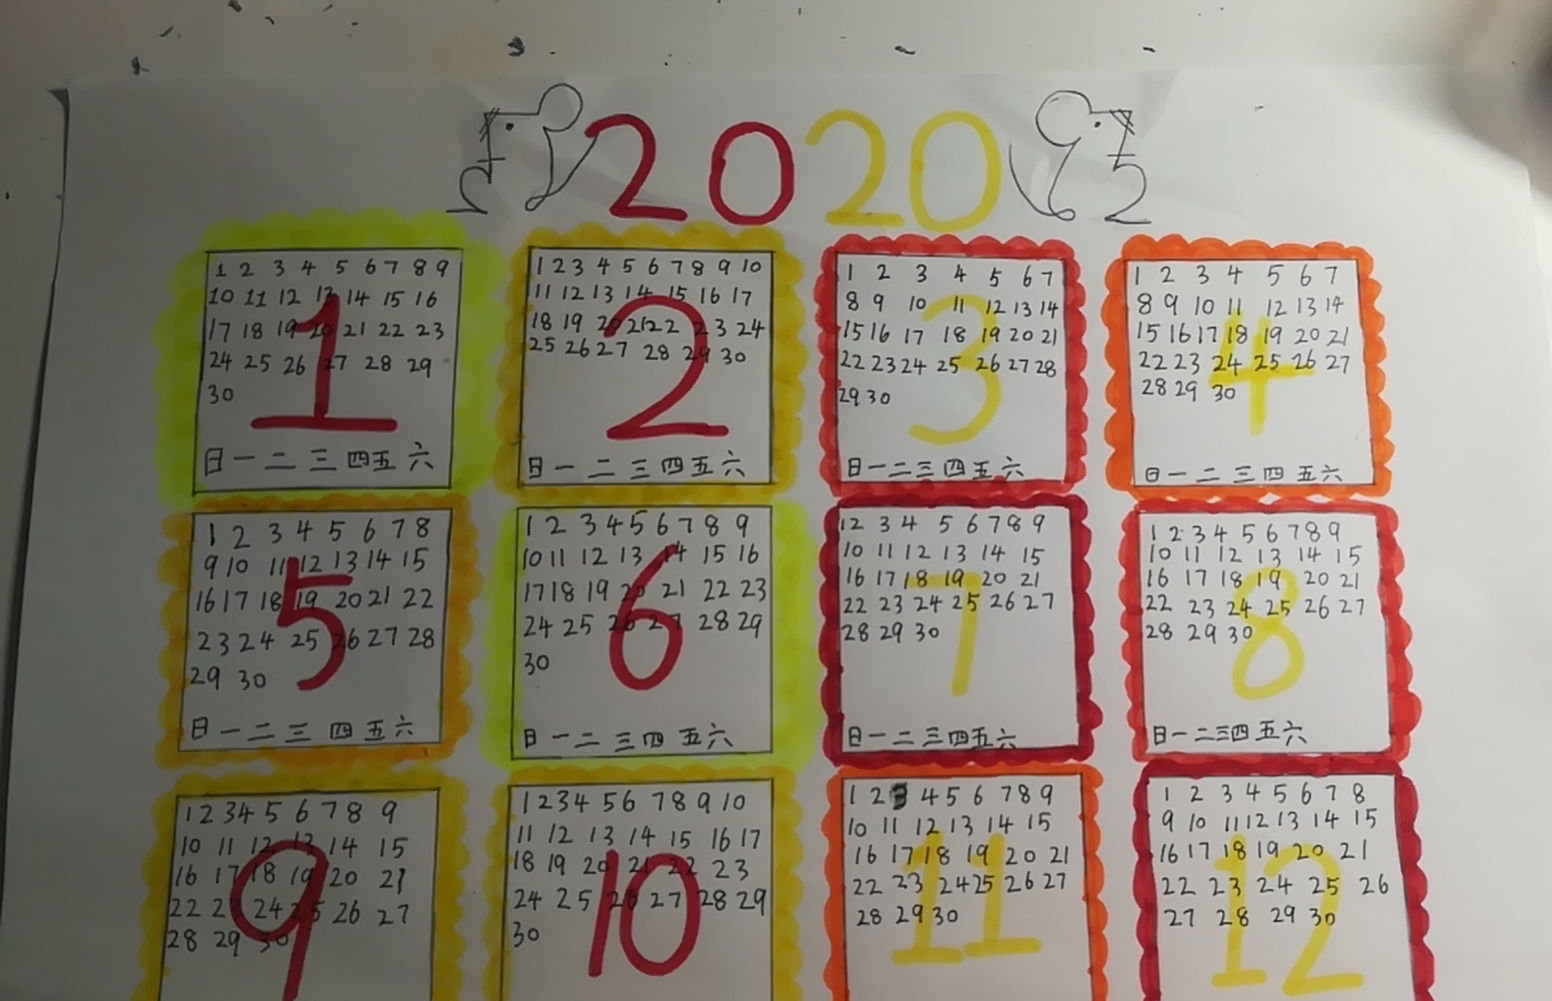 2020
1 2 3 4 5 6 7 8 9
10 11 12 13 14 15 16
17 18 19 20 21 22 23
24 25 26 27 28 29
30
1
日 一 二 三 四 五 六
1 2 3 4 5 6 7 8 9 10
11 12 13 14 15 16 17
18 19 20 21 22 23 24
25 26 27 28 29 30
2
日 一 二 三 四 五 六
1 2 3 4 5 6 7
8 9 10 11 12 13 14
15 16 17 18 19 20 21
22 23 24 25 26 27 28
29 30
3
日 一 二 三 四 五 六
1 2 3 4 5 6 7
8 9 10 11 12 13 14
15 16 17 18 19 20 21
22 23 24 25 26 27
28 29 30
4
日 一 二 三 四 五 六
1 2 3 4 5 6 7 8
9 10 11 12 13 14 15
16 17 18 19 20 21 22
23 24 25 26 27 28
29 30
5
日 一 二 三 四 五 六
1 2 3 4 5 6 7 8 9
10 11 12 13 14 15 16
17 18 19 20 21 22 23
24 25 26 27 28 29
30
6
日 一 二 三 四 五 六
1 2 3 4 5 6 7 8 9
10 11 12 13 14 15
16 17 18 19 20 21
22 23 24 25 26 27
28 29 30
7
日 一 二 三 四 五 六
1 2 3 4 5 6 7 8 9
10 11 12 13 14 15
16 17 18 19 20 21
22 23 24 25 26 27
28 29 30
8
日 一 二 三 四 五 六
1 2 3 4 5 6 7 8 9
10 11 12 13 14 15
16 17 18 19 20 21
22 23 24 25 26 27
28 29 30
9
1 2 3 4 5 6 7 8 9 10
11 12 13 14 15 16 17
18 19 20 21 22 23
24 25 26 27 28 29
30
10
1 2 3 4 5 6 7 8 9
10 11 12 13 14 15
16 17 18 19 20 21
22 23 24 25 26 27
28 29 30
11
1 2 3 4 5 6 7 8
9 10 11 12 13 14 15
16 17 18 19 20 21
22 23 24 25 26
27 28 29 30
12